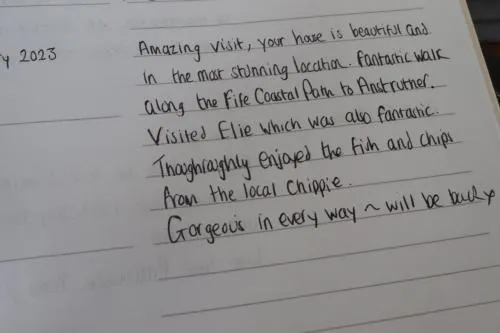 y 2023
Amazing visit, your house is beautiful and
in the most stunning location. Fantastic walk
along the Fife Coastal Path to Anstruther.
Visited Elie which was also fantastic.
Thoughroughly enjoyed the fish and chips
from the local chippie.
Gorgeous in every way ~ will be back